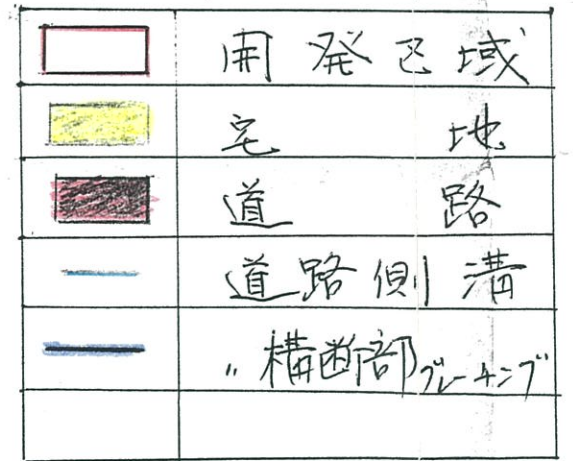 開発区域
宅地
道路
道路側溝
〃横断部グレーチング